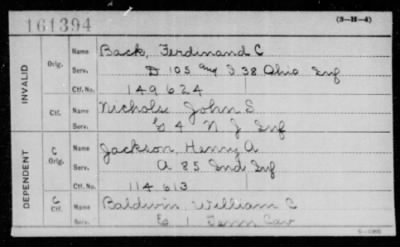 161394
(3-H-4)
INVALID
Orig.
Name Back, Ferdinand C
Serv. D 105 & 38 Ohio Inf
Ctf. No. 149624
Ctf.
Name Nichols John S
Serv. G 4 N J Inf
DEPENDENT
C
Orig.
Name Jackson, Henry A
Serv. A 85 Ind Inf
Ctf. No. 114613
C
Ctf.
Name Baldwin, William C
Serv. E 1 Tenn Cav